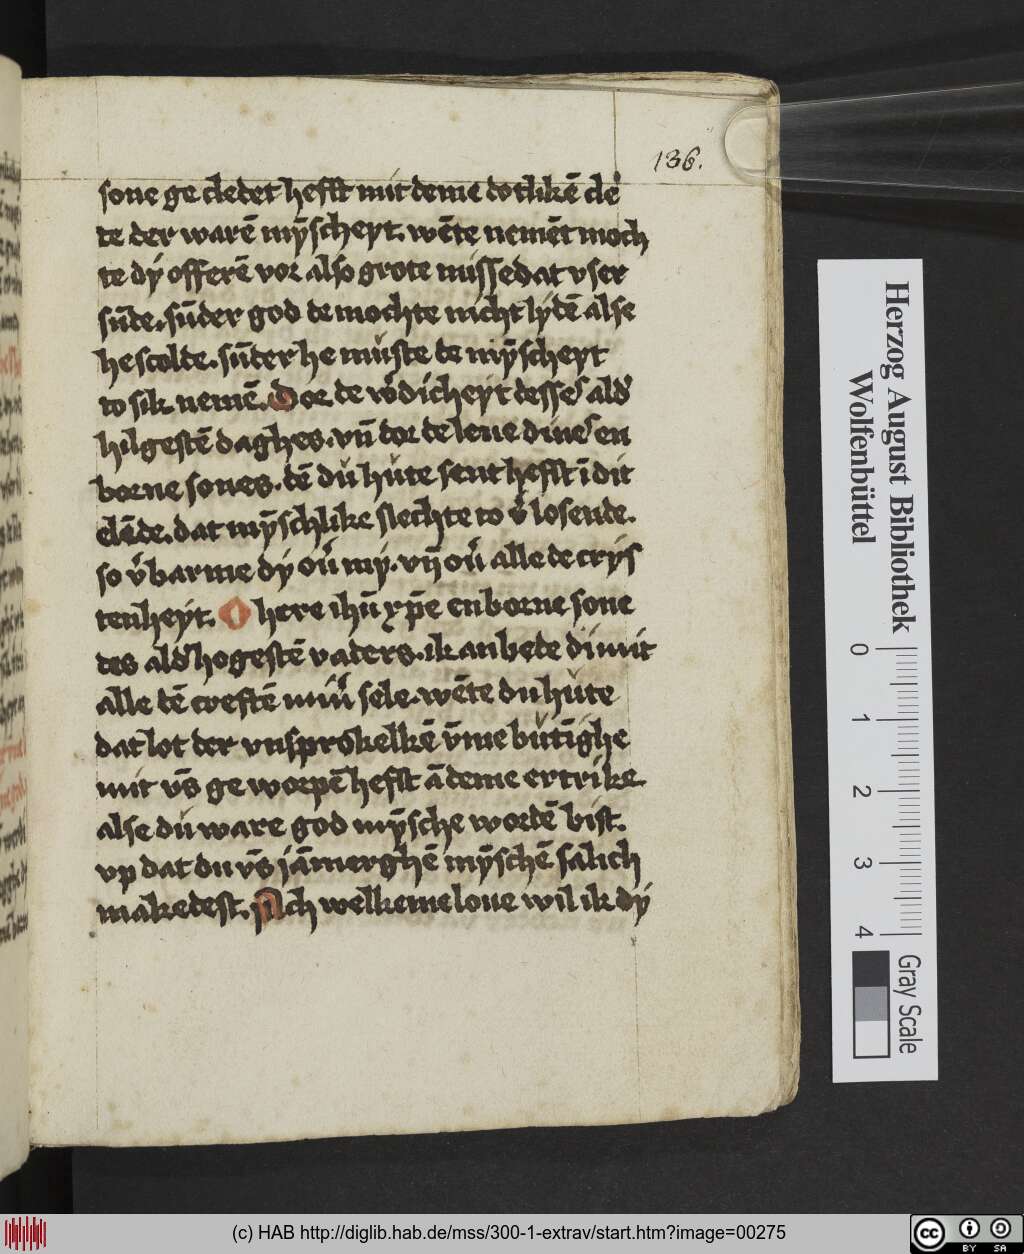 136.
sone ge cledet hefft mit deme dotlikē cle
te der warē mȳscheyt. wēte nemēt moch
te dÿ offerē vor also grote missedat vser
sūde. sūder god de mochte nicht lydē alse
he scolde. sūder he muste de mȳscheyt
to sik nemē. Dor de w̾dicheyt desse͛ ald͛
hilgestē daghes. vn̄ dor de leue dine͛ en
borne sones. dē du hute sent hefft ī dit
elēde. dat mȳschlike slechte to v̾losende.
so v̾barme dÿ ou̾ mÿ. vn̄ ou̾ alle de crys
tenheyt. O here ihū xp̄e enborne sone
des ald͛ hogestē vaders. ik anbede di mit
alle dē creftē min̾ sele. wēte du hute
dat lot der vnsprokelkē v̄me butīghe
mit vs̄ ge worpē hefft ā deme ertrike
alse du ware god mȳsche wordē bist.
vp dat du vs̄ jāmerghē mȳschē salich
makedest. Ach welkeme loue wil ik dÿ
Herzog August Bibliothek
Wolfenbüttel
0
1
2
3
4
Gray Scale
(c) HAB http://diglib.hab.de/mss/300-1-extrav/start.htm?image=00275
cc
BY SA